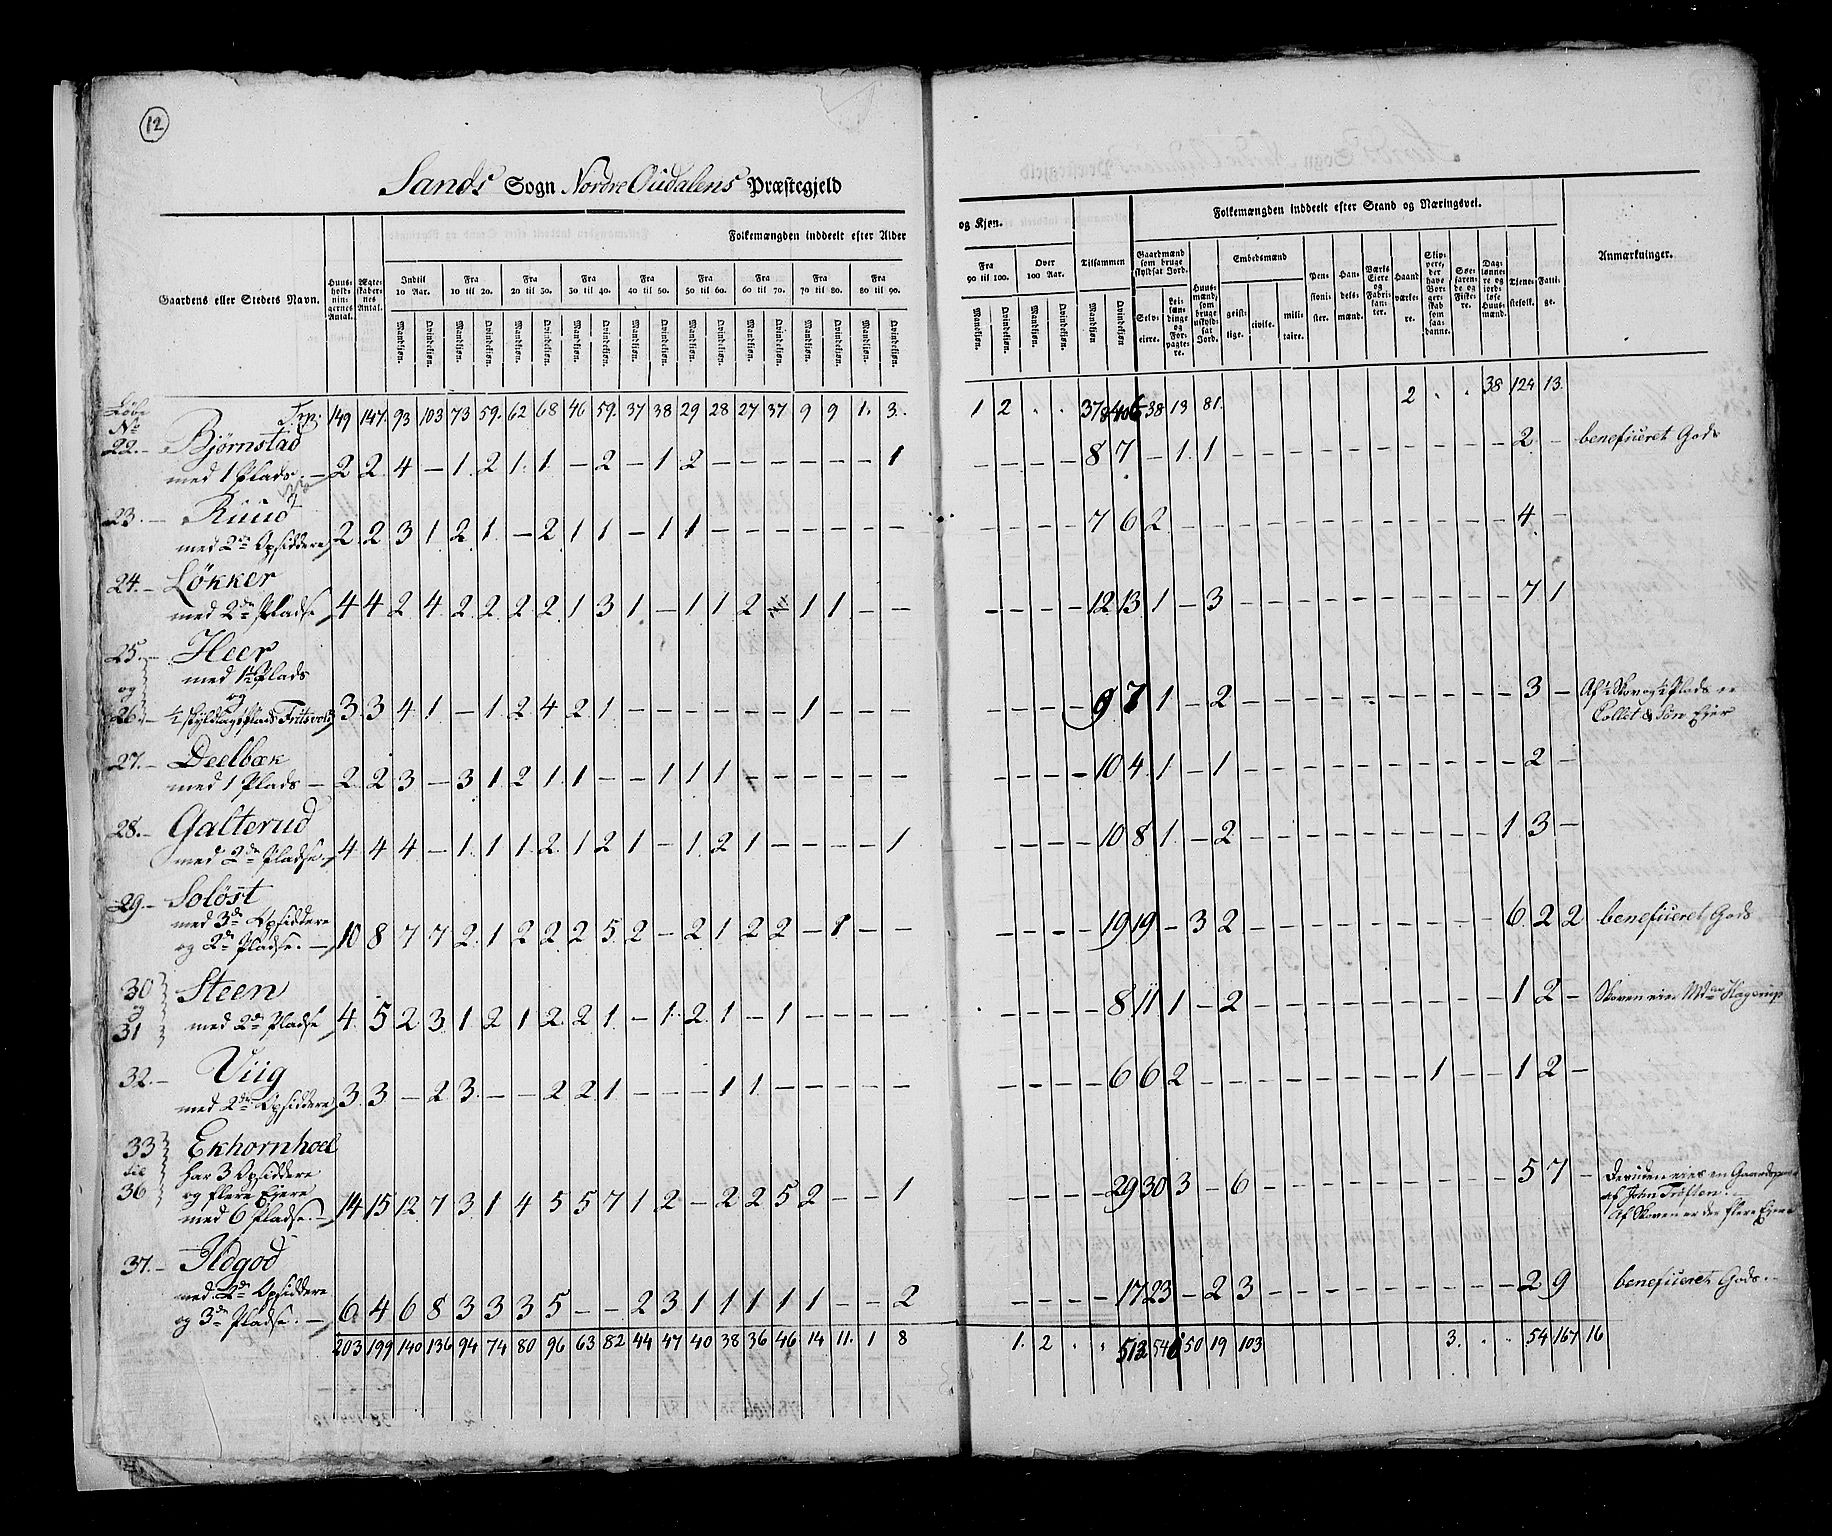 12
Sands Sogn Nordre Oudalens Præstegjeld
Gaardens eller Stedets Navn.
Huus-holdningernes Antal.
Ægteskabernes Antal.
Folkemængden inddeelt efter Alder
og Kjøn.
Indtil 10 Aar.
Fra 10 til 20.
Fra 20 til 30.
Fra 30 til 40.
Fra 40 til 50.
Fra 50 til 60.
Fra 60 til 70.
Fra 70 til 80.
Fra 80 til 90.
Fra 90 til 100.
Over 100 Aar.
Tilsammen
Mandkjøn. Qvindekjøn.
Folkemængden inddeelt efter Stand og Næringsvei.
Gaardmænd som bruge skyldsat Jord.
Selveiere.
Leilændinge og Forpagtere.
Huusmænd, som bruge uskyldsat Jord.
Embedsmænd
geistlige.
civile.
militaire.
Pensionister.
Handelsmænd.
Værkseiere og Fabrikanter.
Haandværkere.
Skippere, der have Borgerskab som saadanne.
Søefarende og Fiskere.
Daglønnere og jordløse Huusmænd.
Tjenestefolk.
Fattige.
Anmærkninger.
Løbe No Trp. 149 147 93 103 73 59 62 68 46 59 37 38 29 28 27 37 9 9 1 3 1 2 . . 378 406 38 13 81 2 . . 38 124 13
22.- Bjørnstad
med 1 Plads. - 2 2 4 - 1 2 1 1 - 2 - 1 2 - - - - - - 1 - - - - 8 7 - 1 1 - - - - - - - - - - - 2 - beneficeret Gods
23.- Ruud
med 2de Opsiddere 2 2 3 1 2 1 - 2 1 1 - 1 1 - - - - - - - - - - - 7 6 2 - - - - - - - - - - - - - 4 -
24.- Løkker
med 2de Pladse 4 4 2 4 2 2 2 2 1 3 1 - 1 1 2 - 1 1 - - - - - - 12 13 1 - 3 - - - - - - - - - - - 7 1
25.- Heer
med 1 1/2 Plads
og
26.- 1/2 skyldlagt Plads Fritsvold 3 3 4 1 - 1 2 4 2 1 - - - - - - 1 - - - - - - - 9 7 1 - 2 - - - - - - - - - - - 3 - Af 1/2 Skov og 1/2 Plads er
Collet & Søn Ejer
27.- Deelbæk
med 1 Plads - 2 2 3 - 3 1 2 1 1 - - 1 1 1 - - - - - - - - - - 10 4 1 - 1 - - - - - - - - - - - 2 -
28.- Galterud
med 2de Pladse. 4 4 4 - 1 1 1 2 1 2 1 - 1 2 1 - - - - 1 - - - - 10 8 1 - 2 - - - - - - - - - - 1 3 -
29.- Soløst
med 3de Opsiddere
og 2de Pladse. - 10 8 7 7 2 1 2 2 2 5 2 - 2 1 2 2 - 1 - - - - - - 19 19 - 3 2 - - - - - - - - - - 6 2 2 benefiueret Gods
30 Steen
og
31 med 2de Pladse 4 5 2 3 1 2 1 2 2 1 - 1 2 1 - 1 - - - - - - - - 8 11 1 - 2 - - - - - - - - - - 1 2 - Skoven eier Mdm Hagerup
32.- Viig
med 2de Opsiddere 3 3 - 2 3 - - 2 2 1 - - - 1 1 - - - - - - - - - 6 6 2 - - - - - - - - 1 - - 1 2 -
33 Ekhornhoel
til har 3 Opsiddere
36 og flere Ejere
med 6 Pladse. - 14 15 12 7 3 1 4 5 5 7 1 2 - 2 2 5 2 - - 1 - - - - 29 30 3 - 6 - - - - - - - - - - 5 7 -
af John
Af Skoven er der flere Ejere
37.- Ildgod
med 2de Opsiddere
og 3de Pladse. - 6 4 6 8 3 3 3 5 - - 2 3 1 1 1 1 1 - - 2 - - - - 17 23 - 2 3 - - - - - - - - - - 2 9 benefiueret Gods.
203 199 140 136 94 74 80 96 63 82 44 47 40 38 36 46 14 11 1 8 1 2 . . 513 540 50 19 103 3 . . 54 167 16